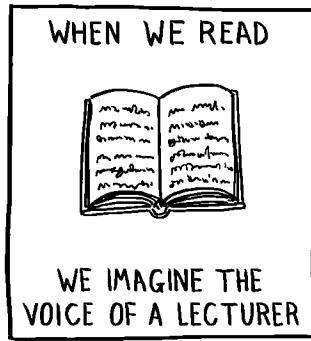 WHEN WE READ
WE IMAGINE THE
VOICE OF A LECTURER